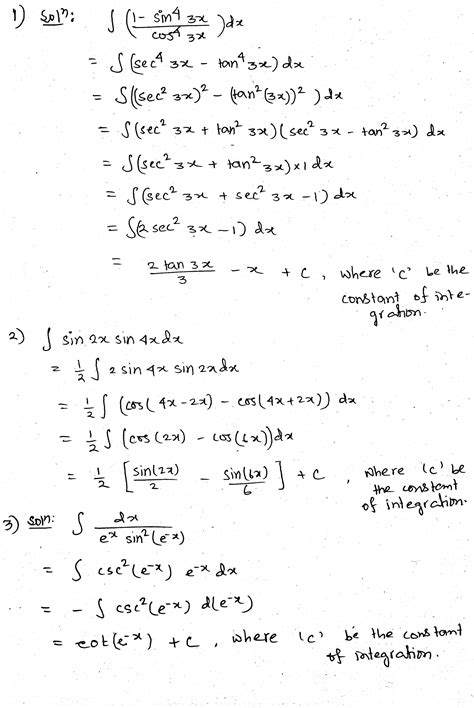 1) Solⁿ: ∫ (1 - sin⁴ 3x / cos⁴ 3x) dx
= ∫ (sec⁴ 3x - tan⁴ 3x) dx
= ∫ ((sec² 3x)² - (tan² (3x))²) dx
= ∫ (sec² 3x + tan² 3x) (sec² 3x - tan² 3x) dx
= ∫ (sec² 3x + tan² 3x) x 1 dx
= ∫ (sec² 3x + sec² 3x - 1) dx
= ∫ (2 sec² 3x - 1) dx
= 2 tan 3x / 3 - x + C, where 'C' be the
constant of inte-
gration.
2) ∫ sin 2x sin 4x dx
= 1/2 ∫ 2 sin 4x sin 2x dx
= 1/2 ∫ (cos (4x - 2x) - cos (4x + 2x)) dx
= 1/2 ∫ (cos (2x) - cos (6x)) dx
= 1/2 [sin(2x)/2 - sin(6x)/6] + C, where 'C' be
the constant
of integration.
3) Solⁿ: ∫ dx / eˣ sin² (e⁻ˣ)
= ∫ csc² (e⁻ˣ) e⁻ˣ dx
= - ∫ csc² (e⁻ˣ) d(e⁻ˣ)
= cot (e⁻ˣ) + C, where 'C' be the constant
of integration.